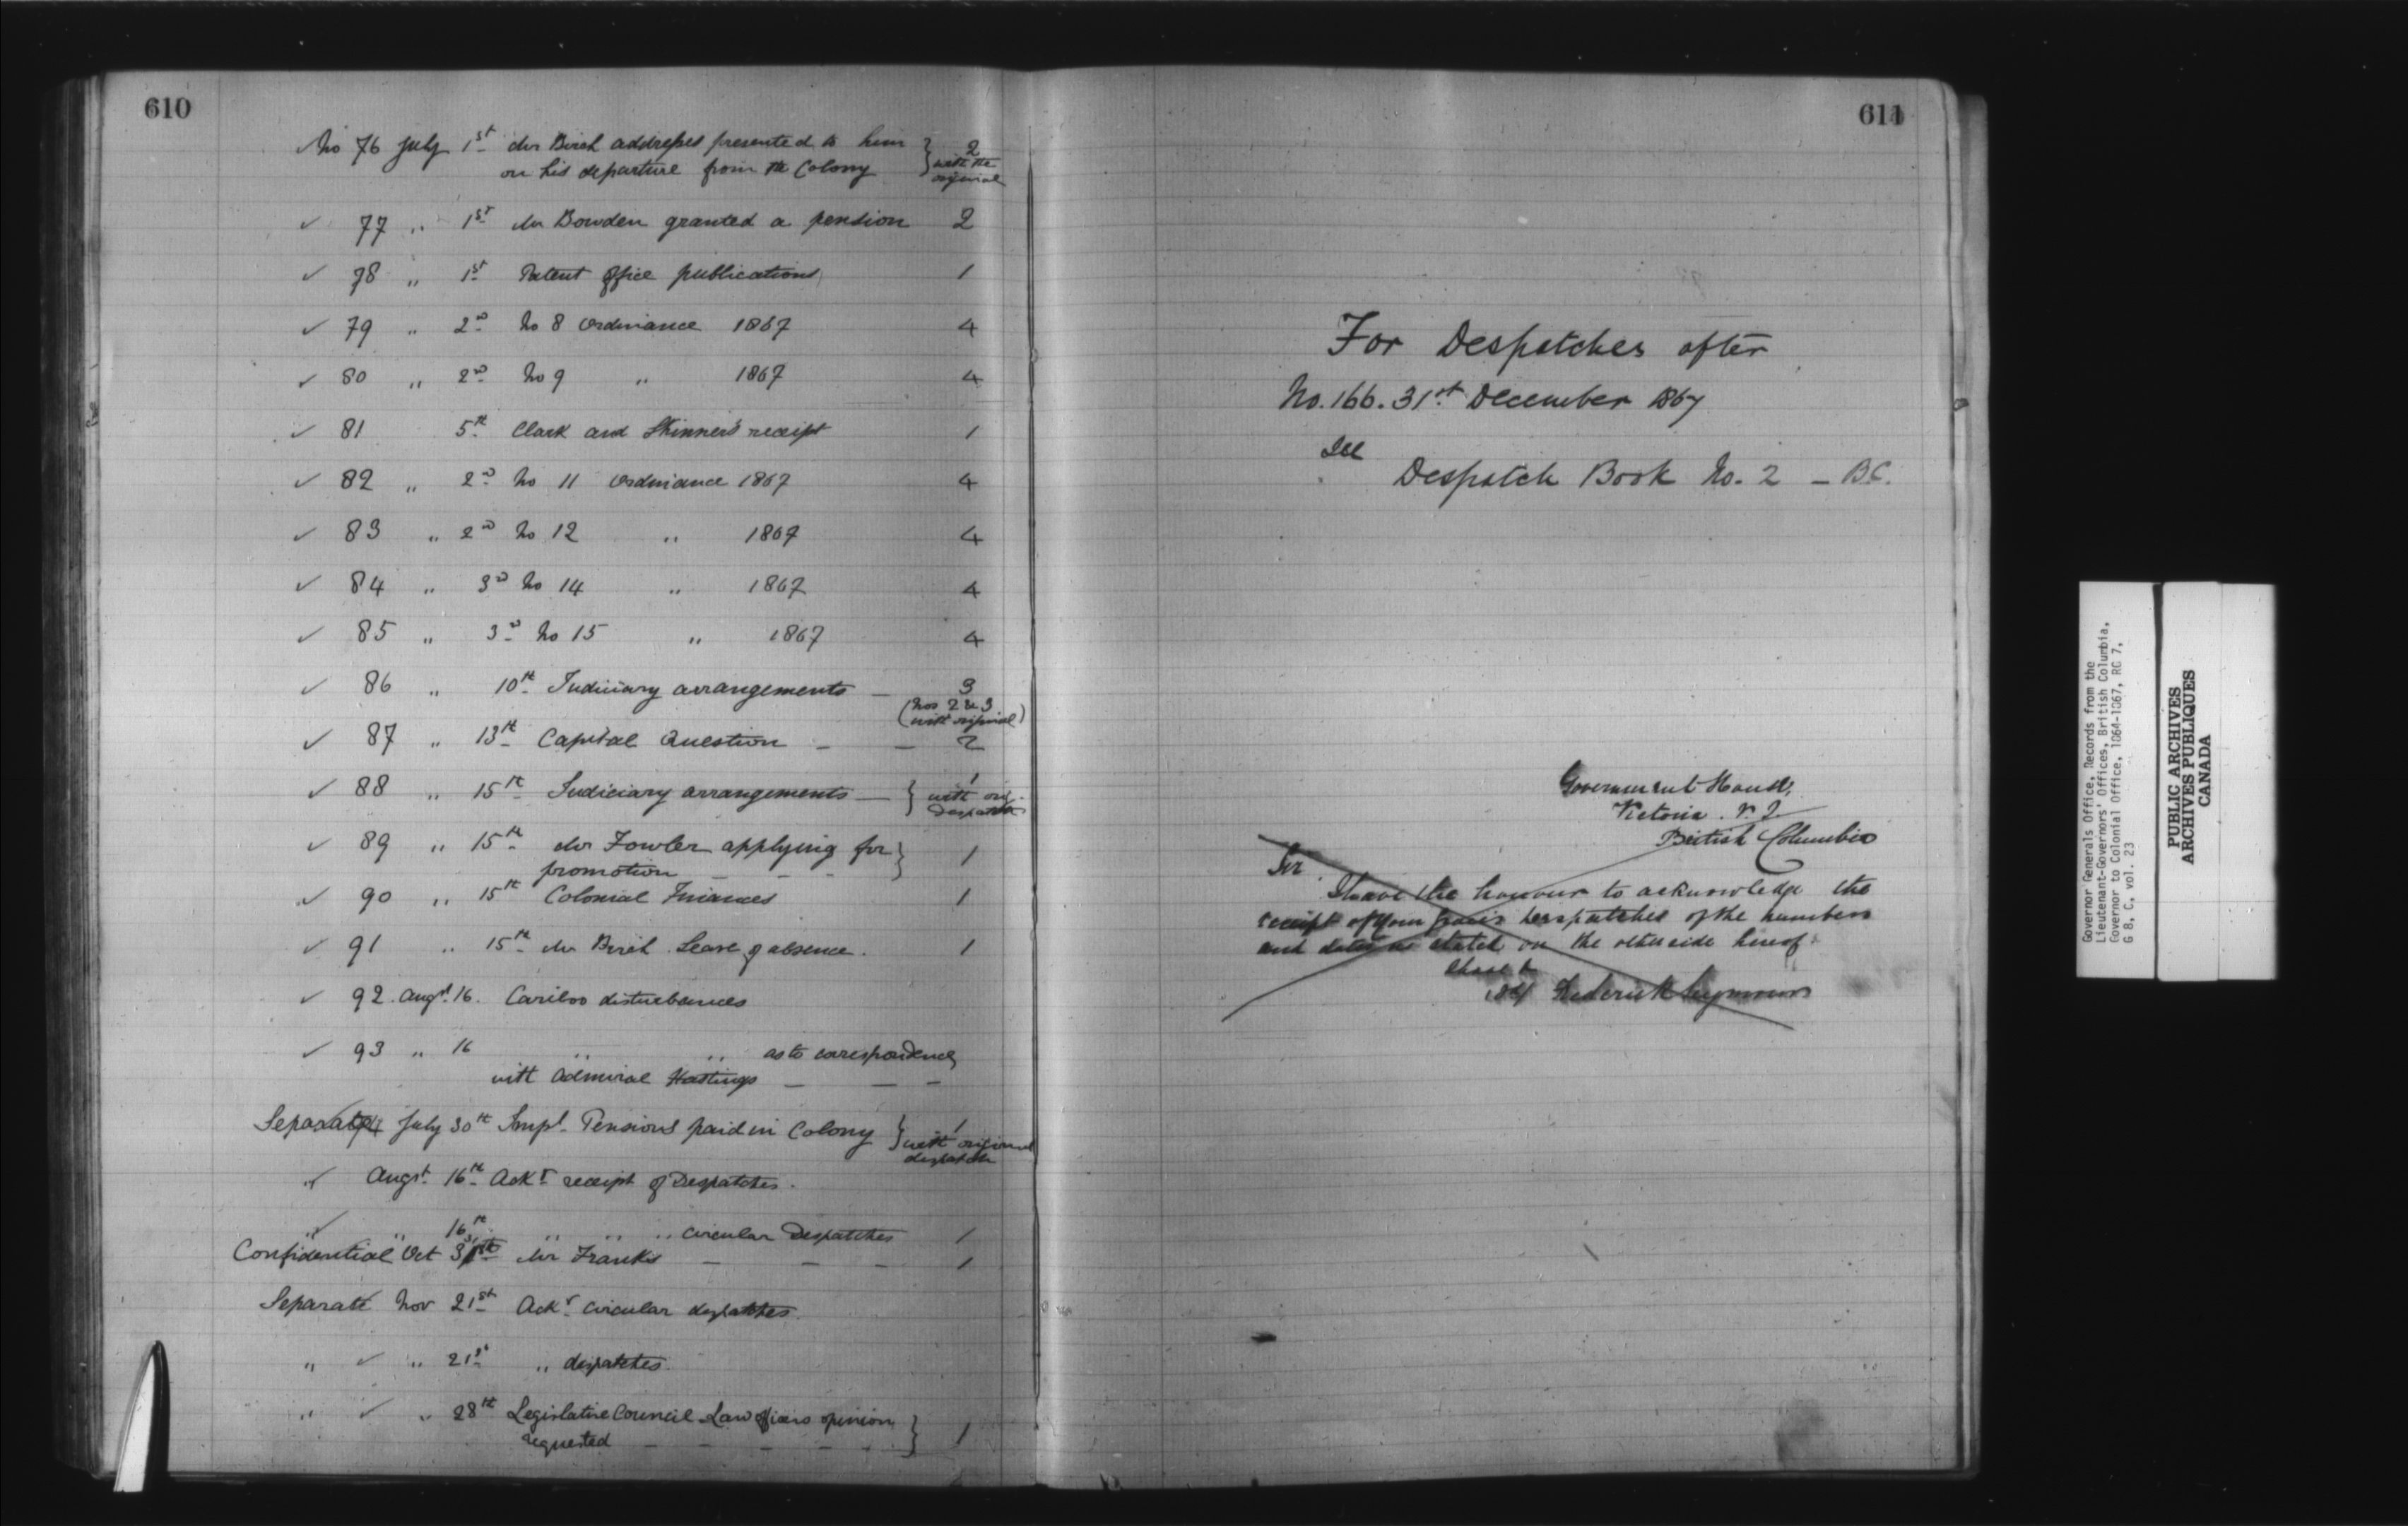 610
No 76 July 1st Mr Birch addresses presented to him } 2
on his departure from the Colony } with the
original
✓ 77 " 1st Mr Bowden granted a pension 2
✓ 78 " 1st Patent Office publications 1
✓ 79 " 2nd No 8 Ordinance 1867 4
✓ 80 " 2nd No 9 " 1867 4
✓ 81 5th Clark and Skinner's receipt 1
✓ 82 " 2nd No 11 Ordinance 1867 4
✓ 83 " 2nd No 12 " 1867 4
✓ 84 " 3rd No 14 " 1867 4
✓ 85 " 3rd No 15 " 1867 4
✓ 86 " 10th Judiciary arrangements — 3
(Nos 2 & 3
with original)
✓ 87 " 13th Capital Question — — 2
✓ 88 " 15th Judiciary arrangements — } 1
with orig.
Despatch
✓ 89 " 15th Mr Fowler applying for } 1
promotion - - -
✓ 90 " 15th Colonial Finances 1
✓ 91 " 15th Mr Birch Leave of absence. 1
✓ 92 Augst 16. Cariboo disturbances
✓ 93 " 16 " " as to correspondence
with Admiral Hastings — — —
Separate July 30th Impl Pensions paid in Colony } 1
with original
despatch
✓ Augst 16th Ackg receipt of Despatches.
" ✓ " 16th " " " circular Despatches 1
Confidential Oct 31st Mr Franks — — — 1
Separate Nov 21st Ackg circular despatches.
" ✓ " 21st " despatches.
" ✓ " 28th Legislative Council Law officers opinion } 1
requested — — — — —
611
For Despatches after
No. 166. 31st December 1867
See
Despatch Book No. 2 — B.C.
Government House,
Victoria. V. I
British Columbia
Sir
I have the honour to acknowledge the
receipt of Your Grace's despatches of the numbers
and dates as stated on the other side hereof
I have &
Frederick Seymour
Governor Generals Office, Records from the
Lieutenant-Governors' Offices, British Columbia,
Governor to Colonial Office, 1864-1867, RG 7,
G 8, C, vol. 23
PUBLIC ARCHIVES
ARCHIVES PUBLIQUES
CANADA